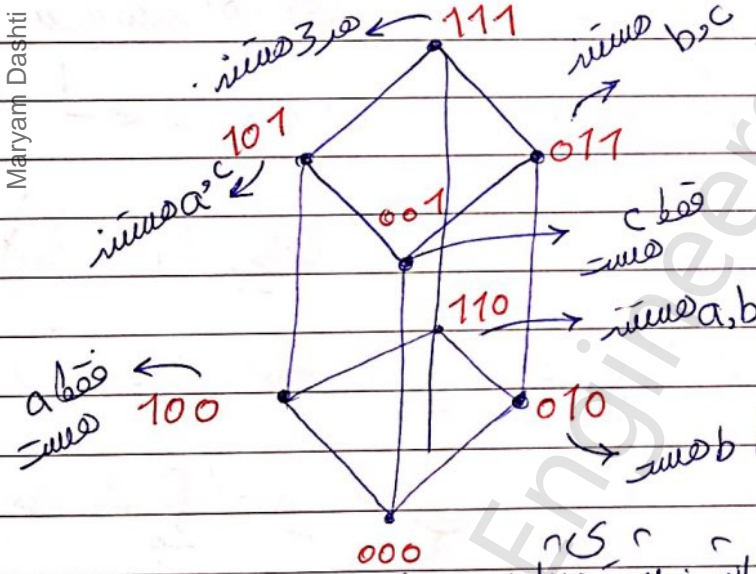 Maryam Dashti
111
هر 3 هستند
b,c هستند
101
011
a,c هستند
001
فقط c
هست
110
a,b هستند
فقط a
هست
100
010
b هست
000
Engineer